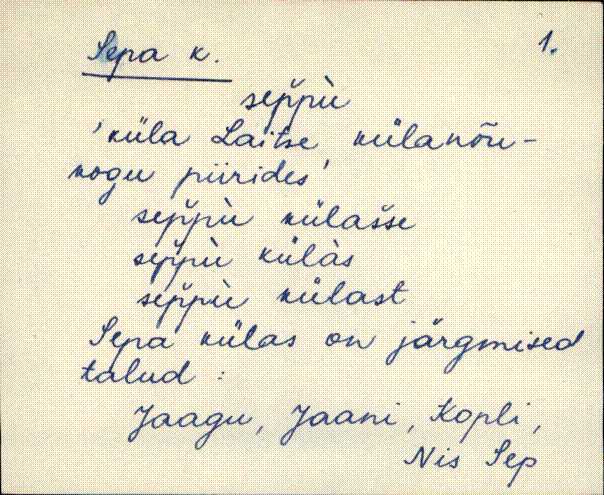 Sepa k.
1.
sep̆p̀ù
'küla Laitse külanõu-
kogu piirides'
sep̆pù külašse
sep̆pù külàs
sep̆pù külast
Sepa külas on järgmised
talud :
Jaagu, Jaani, Kopli,
Nis Sep